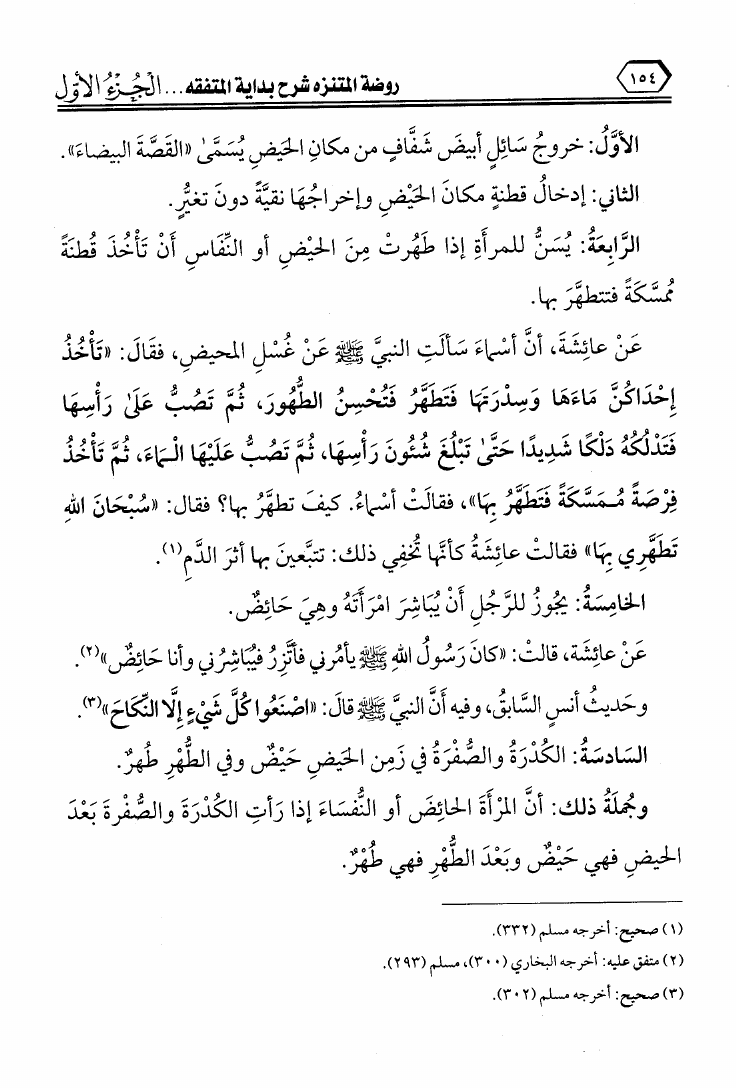 ١٥٤
روضة المتنزه شرح بداية المتفقه ... الْجُزْءُ الأَوَّل
الأوَّلُ: خروجُ سَائِلٍ أبيضَ شَفَّافٍ من مكانِ الحَيضِ يُسَمَّىٰ «القَصَّةَ البيضاءَ».
الثاني: إدخالُ قطنةٍ مكانَ الحَيْضِ وإخراجُهَا نقيَّةً دونَ تغيُّرٍ.
الرَّابِعَةُ: يُسَنُّ للمرأَةِ إذا طَهُرتْ مِنَ الحيْضِ أو النِّفَاسِ أَنْ تَأْخُذَ قُطنَةً
مُمسَّكَةً فتتطهَّرَ بها.
عَنْ عائِشَةَ، أنَّ أسْماءَ سَألَتِ النبيَّ ﷺ عَنْ غُسْلِ المحيضِ، فقَالَ: «تَأْخُذُ
إِحْدَاكُنَّ مَاءَهَا وَسِدْرَتَهَا فَتَطَهَّرُ فَتُحْسِنُ الطُّهُورَ، ثُمَّ تَصُبُّ عَلَىٰ رَأْسِهَا
فَتَدْلُكُهُ دَلْكًا شَدِيدًا حَتَّىٰ تَبْلُغَ شُئُونَ رَأْسِهَا، ثُمَّ تَصُبُّ عَلَيْهَا الْمَاءَ، ثُمَّ تَأْخُذُ
فِرْصَةً مُمَسَّكَةً فَتَطَهَّرُ بِهَا»، فقالَتْ أسْماءُ. كيفَ تطهَّرُ بها؟ فقال: «سُبْحَانَ اللهِ
تَطَهَّرِي بِهَا» فقالتْ عائِشَةُ كأنَّها تُخفِي ذلك: تتبَّعينَ بها أثرَ الدَّمِ(١).
الخامِسَةُ: يجُوزُ للرَّجُلِ أَنْ يُبَاشِرَ امْرَأَتَهُ وهِيَ حَائِضٌ.
عَنْ عائِشَة، قالتْ: «كانَ رَسُولُ اللهِ ﷺ يأمُرني فأتَّزِرُ فيُبَاشِرُني وأنا حَائِضٌ»(٢).
وحَديثُ أنسٍ السَّابقُ، وفيه أنَّ النبيَّ ﷺ قالَ: «اصْنَعُوا كُلَّ شَيْءٍ إِلَّا النِّكَاحَ»(٣).
السَادسَةُ: الكُدْرَةُ والصُّفْرَةُ في زَمِن الحَيضِ حَيْضٌ وفي الطُّهْرِ طُهرٌ.
وجُملَةُ ذلك: أنَّ المرْأَةَ الحائِضَ أو النُّفسَاءَ إذا رَأتِ الكُدْرَةَ والصُّفْرةَ بَعْدَ
الحيضِ فهي حَيْضٌ وبَعْدَ الطُّهْرِ فهي طُهْرٌ.
(١) صحيح: أخرجه مسلم (٣٣٢).
(٢) متفق عليه: أخرجه البخاري (٣٠٠)، مسلم (٢٩٣).
(٣) صحيح: أخرجه مسلم (٣٠٢).